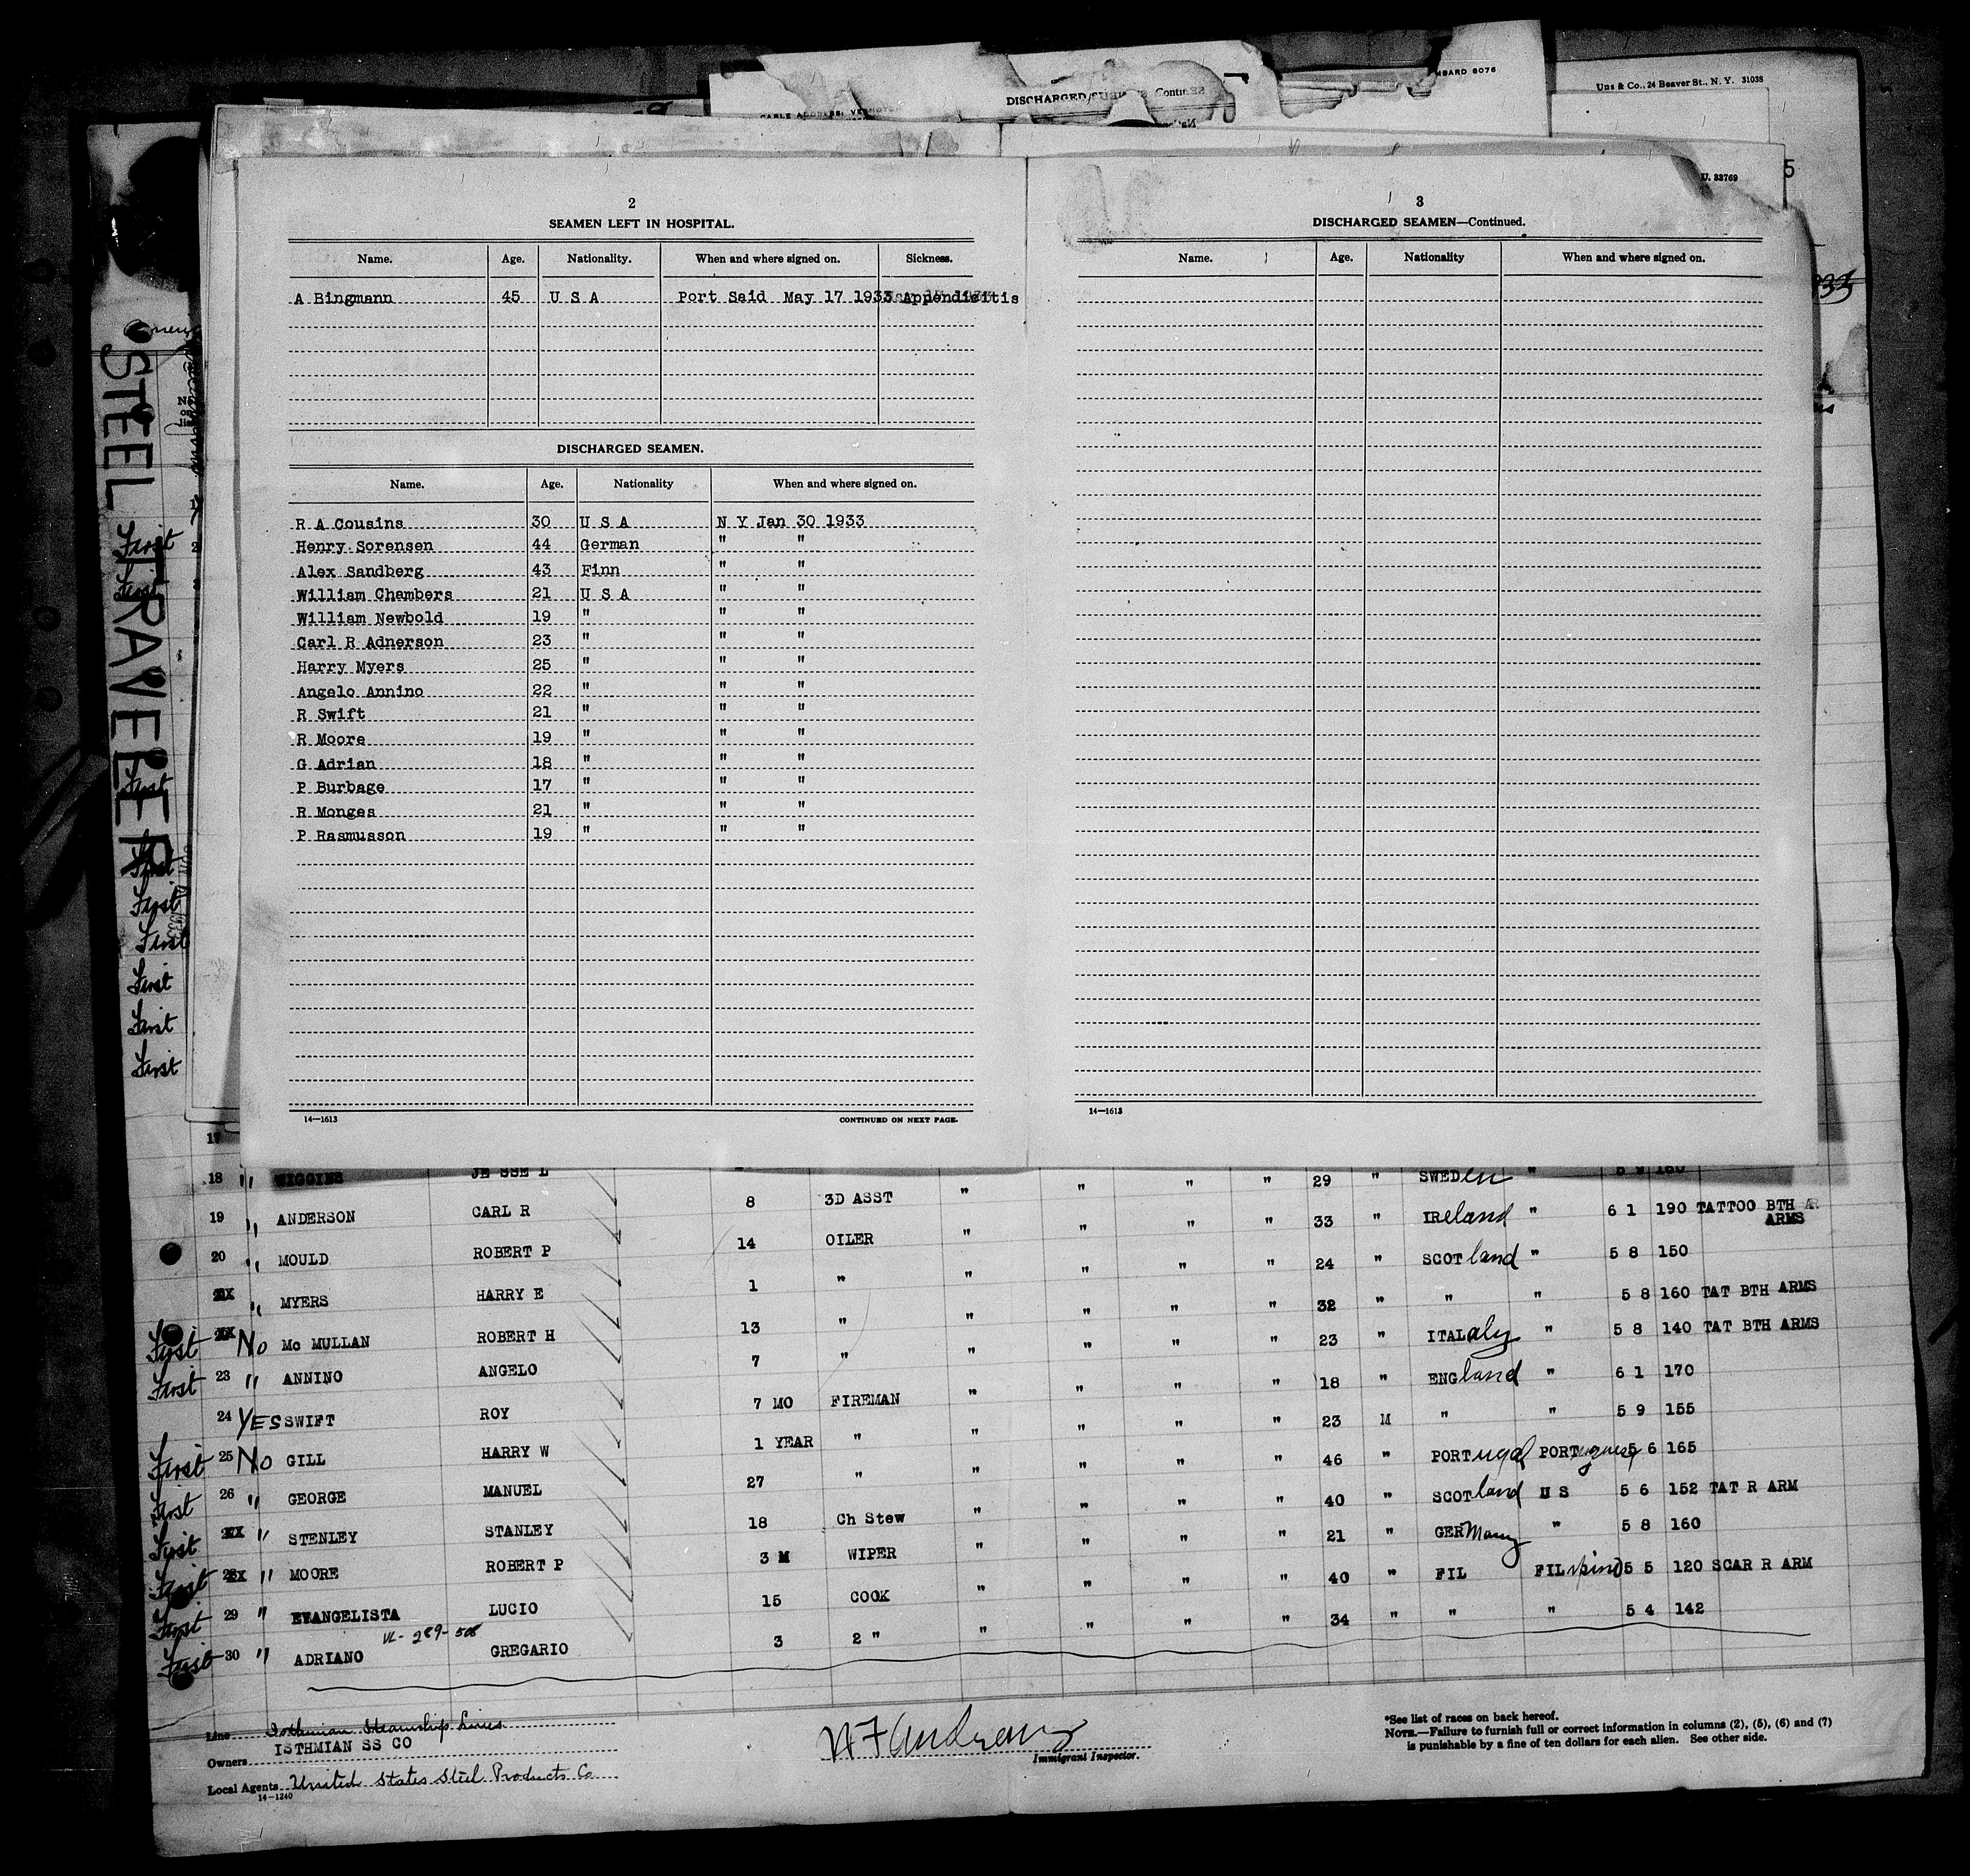 MBARD 6076
Uns & Co., 24 Beaver St., N. Y. 31038
DISCHARGED
U. 33769
5
STEEL TRAVELER
2
SEAMEN LEFT IN HOSPITAL.
Name. Age. Nationality. When and where signed on. Sickness.
A Bingmann 45 U S A Port Said May 17 1933 Appendicitis
DISCHARGED SEAMEN.
Name. Age. Nationality When and where signed on.
R A Cousins 30 U S A N Y Jan 30 1933
Henry Sorensen 44 German " "
Alex Sandberg 43 Finn " "
William Chambers 21 U S A " "
William Newbold 19 " " "
Carl R Adnerson 23 " " "
Harry Myers 25 " " "
Angelo Annino 22 " " "
R Swift 21 " " "
R Moore 19 " " "
G Adrian 18 " " "
P Burbage 17 " " "
R Monges 21 " " "
P Rasmusson 19 " " "
14—1613 CONTINUED ON NEXT PAGE.
3
DISCHARGED SEAMEN—Continued.
Name. Age. Nationality When and where signed on.
14—1613
First
First
First
First
First
First
First
First
First
17
18 " WIGGINS JESSE L 29 " SWEDen "
19 " ANDERSON CARL R 8 3D ASST " " " " 33 " IReland " 6 1 190 TATTOO BTH
ARMS
20 " MOULD ROBERT P 14 OILER " " " " 24 " SCOTland " 5 8 150
" MYERS HARRY E 1 " " " " " 32 " " " 5 8 160 TAT BTH ARMS
First No Mc MULLAN ROBERT H 13 " " " " " 23 " ITALaly " 5 8 140 TAT BTH ARMS
First 23 " ANNINO ANGELO 7 " " " " " 18 " ENGland " 6 1 170
24 YES SWIFT ROY 7 MO FIREMAN " " " " 23 M " " 5 9 155
First 25 No GILL HARRY W 1 YEAR " " " " " 46 " PORTugal PORTuguese 5 6 165
First 26 " GEORGE MANUEL 27 " " " " " 40 " SCOTland U S 5 6 152 TAT R ARM
First " STENLEY STANLEY 18 Ch Stew " " " " 21 " GERMany " 5 8 160
First 28 " MOORE ROBERT P 3 M WIPER " " " " 40 " FIL FILipino 5 5 120 SCAR R ARM
First 29 " EVANGELISTA LUCIO 15 COOK " " " " 34 " " " 5 4 142
First 30 " ADRIANO GREGARIO 3 2 " "
Line Isthmian Steamship Lines
Owners ISTHMIAN SS CO
Local Agents United States Steel Products Co
14—1240
Immigrant Inspector.
*See list of races on back hereof.
NOTE.—Failure to furnish full or correct information in columns (2), (5), (6) and (7)
is punishable by a fine of ten dollars for each alien. See other side.